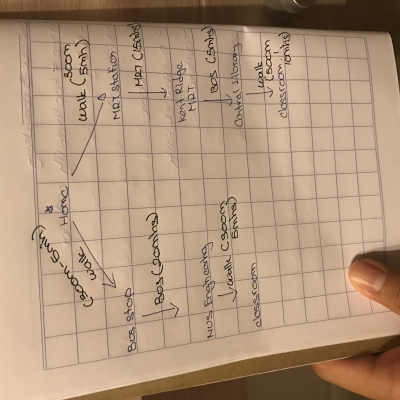 Home
300m
walk (5min)
MRT Station
MRT (15mins)
Kent Ridge
MRT
BUS (5mins)
Central Library
walk
(500m,
10mins)
classroom
(300m-5min)
walk
BUS Stop
BUS (20mins)
NUS Engineering
walk (300m
5mins)
classroom